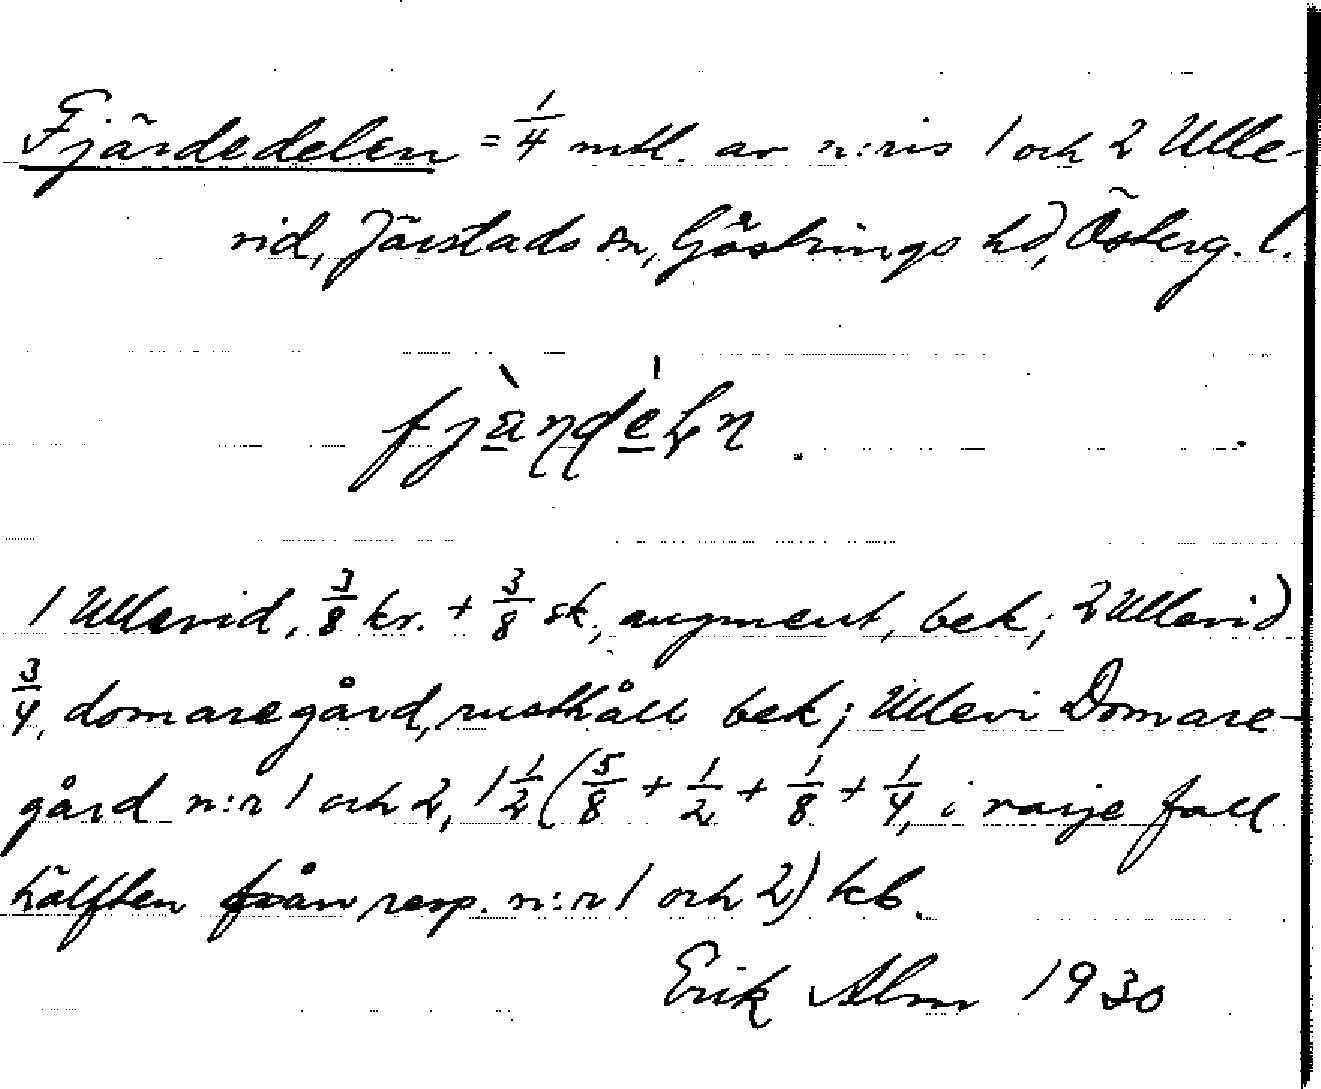 Fjärdedelen = 1/4 mtl. av n:ris 1 och 2 Ulle-
vid, Järstads sn, Göstrings hd, Österg. l.
1 Ullevid, 3/8 kr. + 3/8 sk, augment, bek; 2 Ullevid
3/4, domaregård, rusthåll bek; Ullevi Domare-
gård n:r 1 och 2, 1 1/2 (5/8 + 1/2 + 1/8 + 1/4, i varje fall
hälften från resp. n:r 1 och 2) kb.
Erik Alm 1930